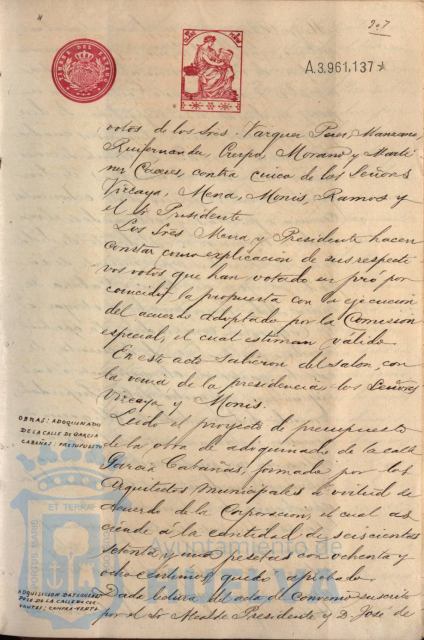 207
TIMBRE DEL ESTADO
A.3.961,137
votos de los Sres. Vazquez Perez, Manzano,
Ruifernandez, Crespo, Morano y Marti-
nez Casaes, contra cinco de los Señores
Vizcaya, Mena, Monis, Ramos y
el Sr Presidente
Los Sres Mena y Presidente hacen
constar como explicación de sus respecti
vos votos que han votado en pró por
coincidir la propuesta con la ejecución
del acuerdo adoptado por la Comisión
especial, el cual estiman válido.
En este acto salieron del salon, con
la venia de la presidencia los Señores
Vizcaya y Monis.
OBRAS: ADOQUINADO
DE LA CALLE DE GARCIA
CABAÑAS: PRESUPUESTO
Leido el proyecto de presupuesto
de la obra de adoquinado de la calle
Garcia Cabañas, formado por los
Arquitectos Municipales á virtud de
acuerdo de la Corporacion el cual as-
ciende á la cantidad de seiscientas
setenta y una pesetas con ochenta y
ocho centimos, quedó aprobado
ADQUISICION DATO
VANTES: COMPRA-VENTA
Dada lectura del acta de Convenio suscrito
por el Sr Alcalde Presidente y D. José de
PORTUS MARIS ET TERRAE
Ayuntamiento de
HUELVA